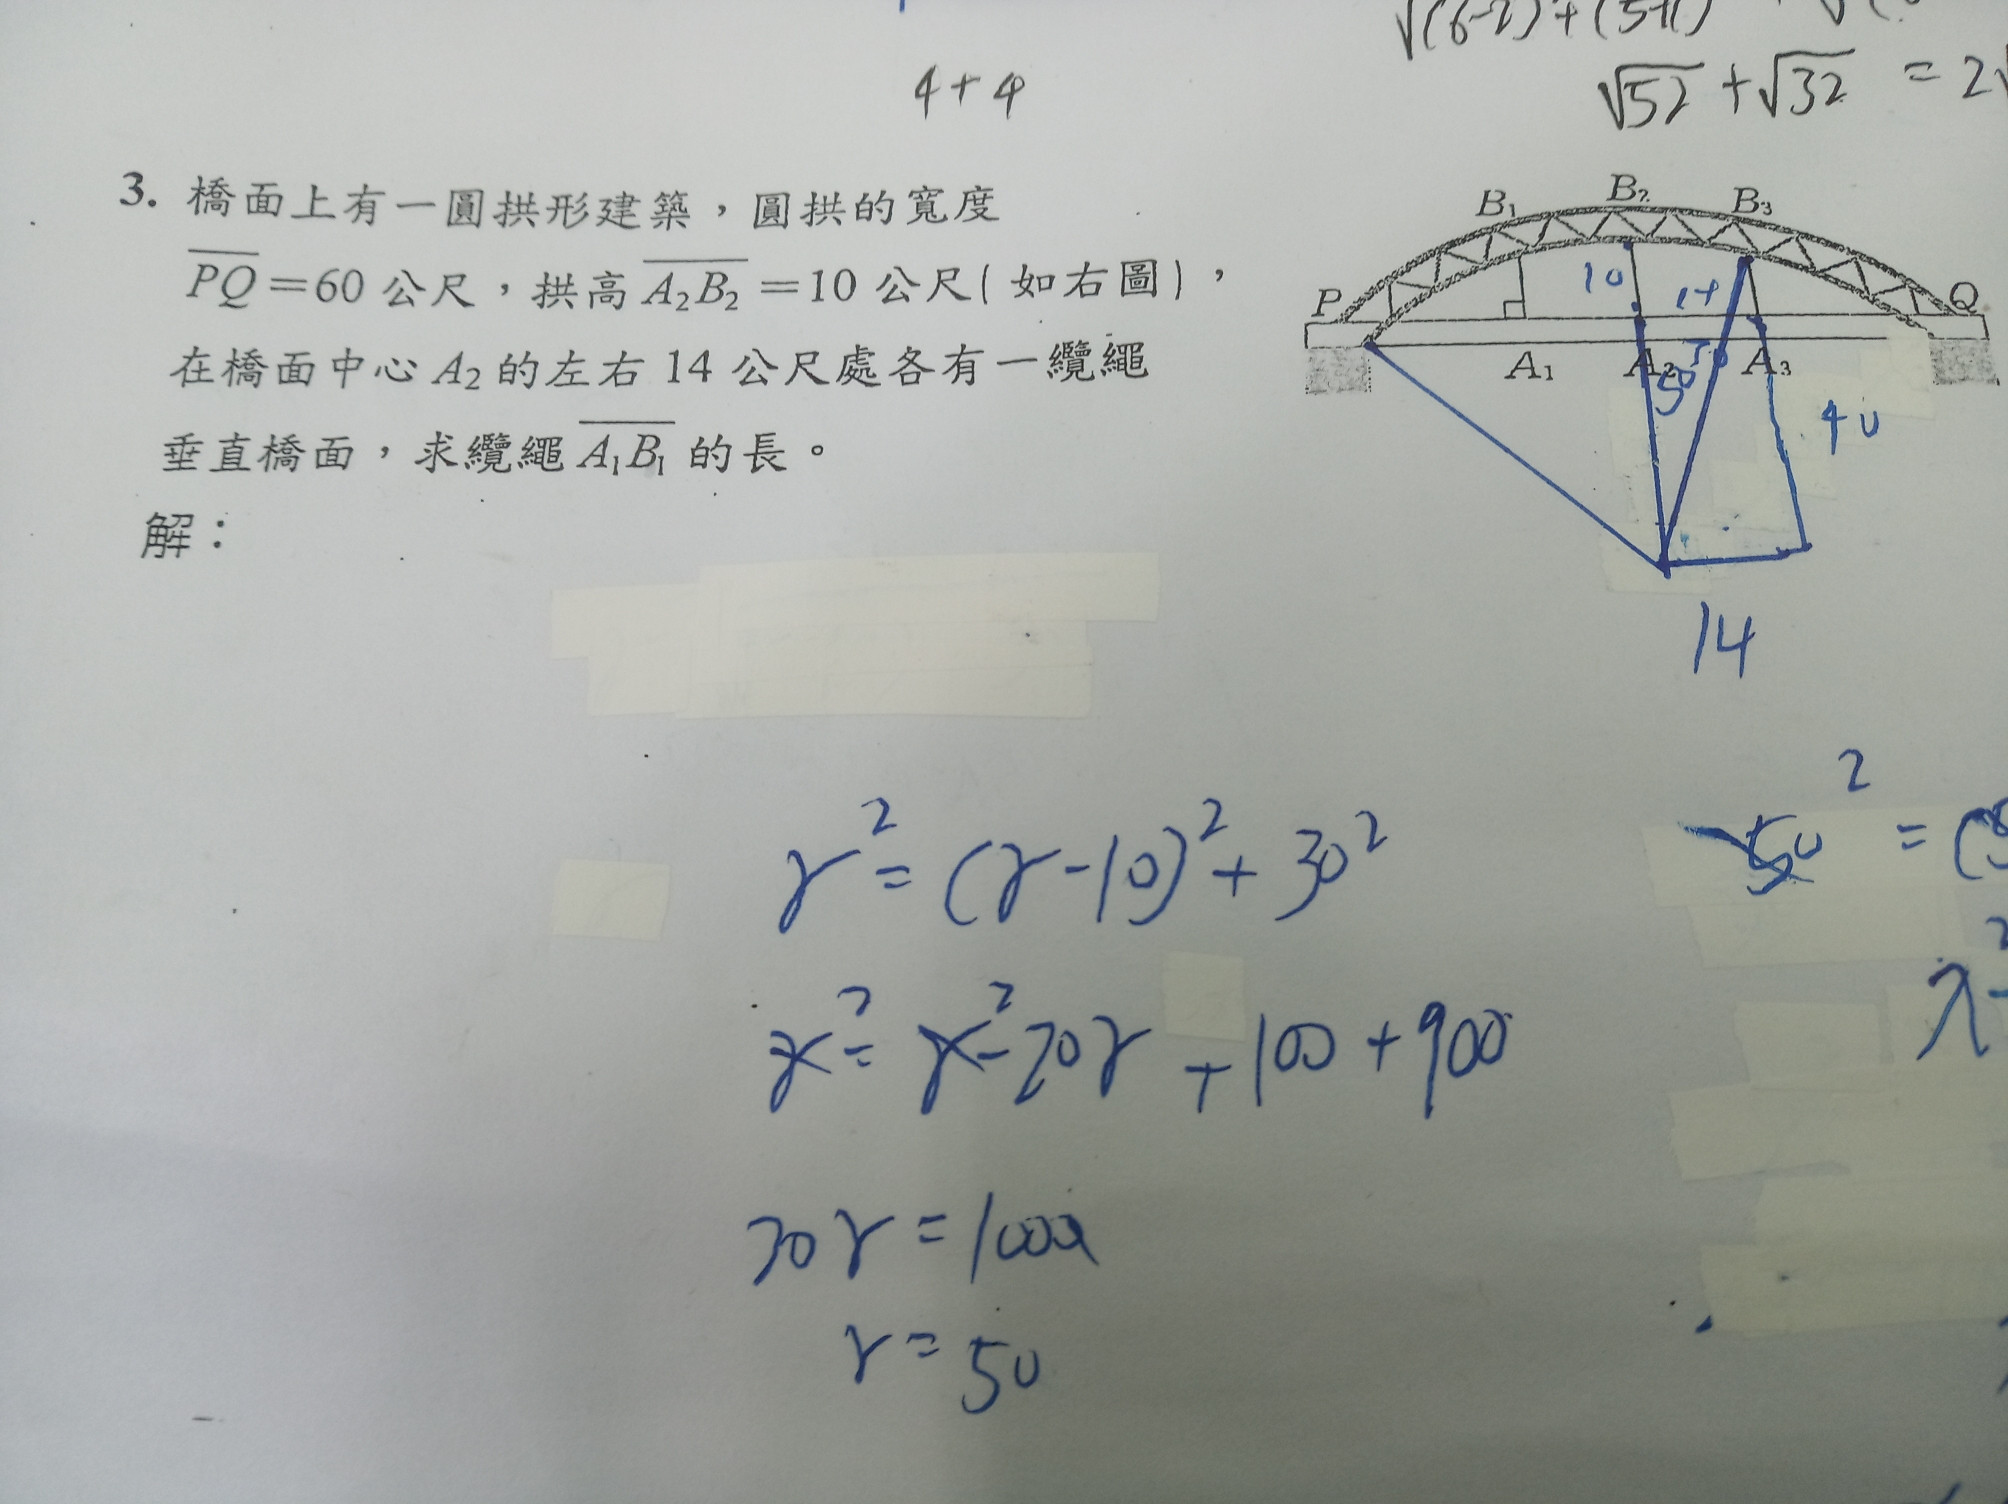 4+4
√(6-2)+(5+1)
√52 + √32 = 2√
3. 橋面上有一圓拱形建築，圓拱的寬度
PQ=60 公尺，拱高 A₂B₂=10 公尺(如右圖)，
在橋面中心 A₂ 的左右 14 公尺處各有一纜繩
垂直橋面，求纜繩 A₁B₁ 的長。
解：
B₁ B₂ B₃
P Q
10
A₁ A₂ A₃
50
40
14
r² = (r-10)² + 30²
r² = r²-20r + 100 + 900
20r = 1000
r = 50
50² = (